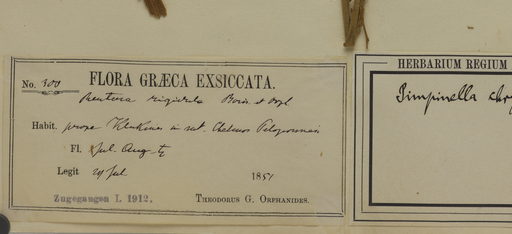 No. 300 FLORA GRÆCA EXSICCATA.
rigidula Boiss. et
Habit. prope in mt. Chelmos Peloponnesi
Fl. Jul. Aug.
Legit 24 Jul 1851
Zugegangen I. 1912. THEODORUS G. ORPHANIDES.
HERBARIUM REGIUM
Pimpinella